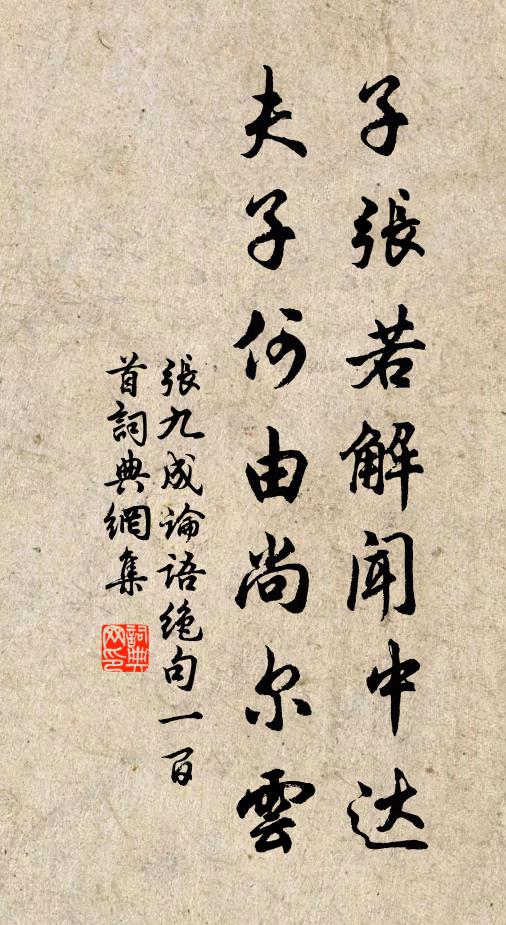 子張若解闻中达
夫子何由尚尔雲
張九成论语绝句一百
首詞典網集
詞典
网印